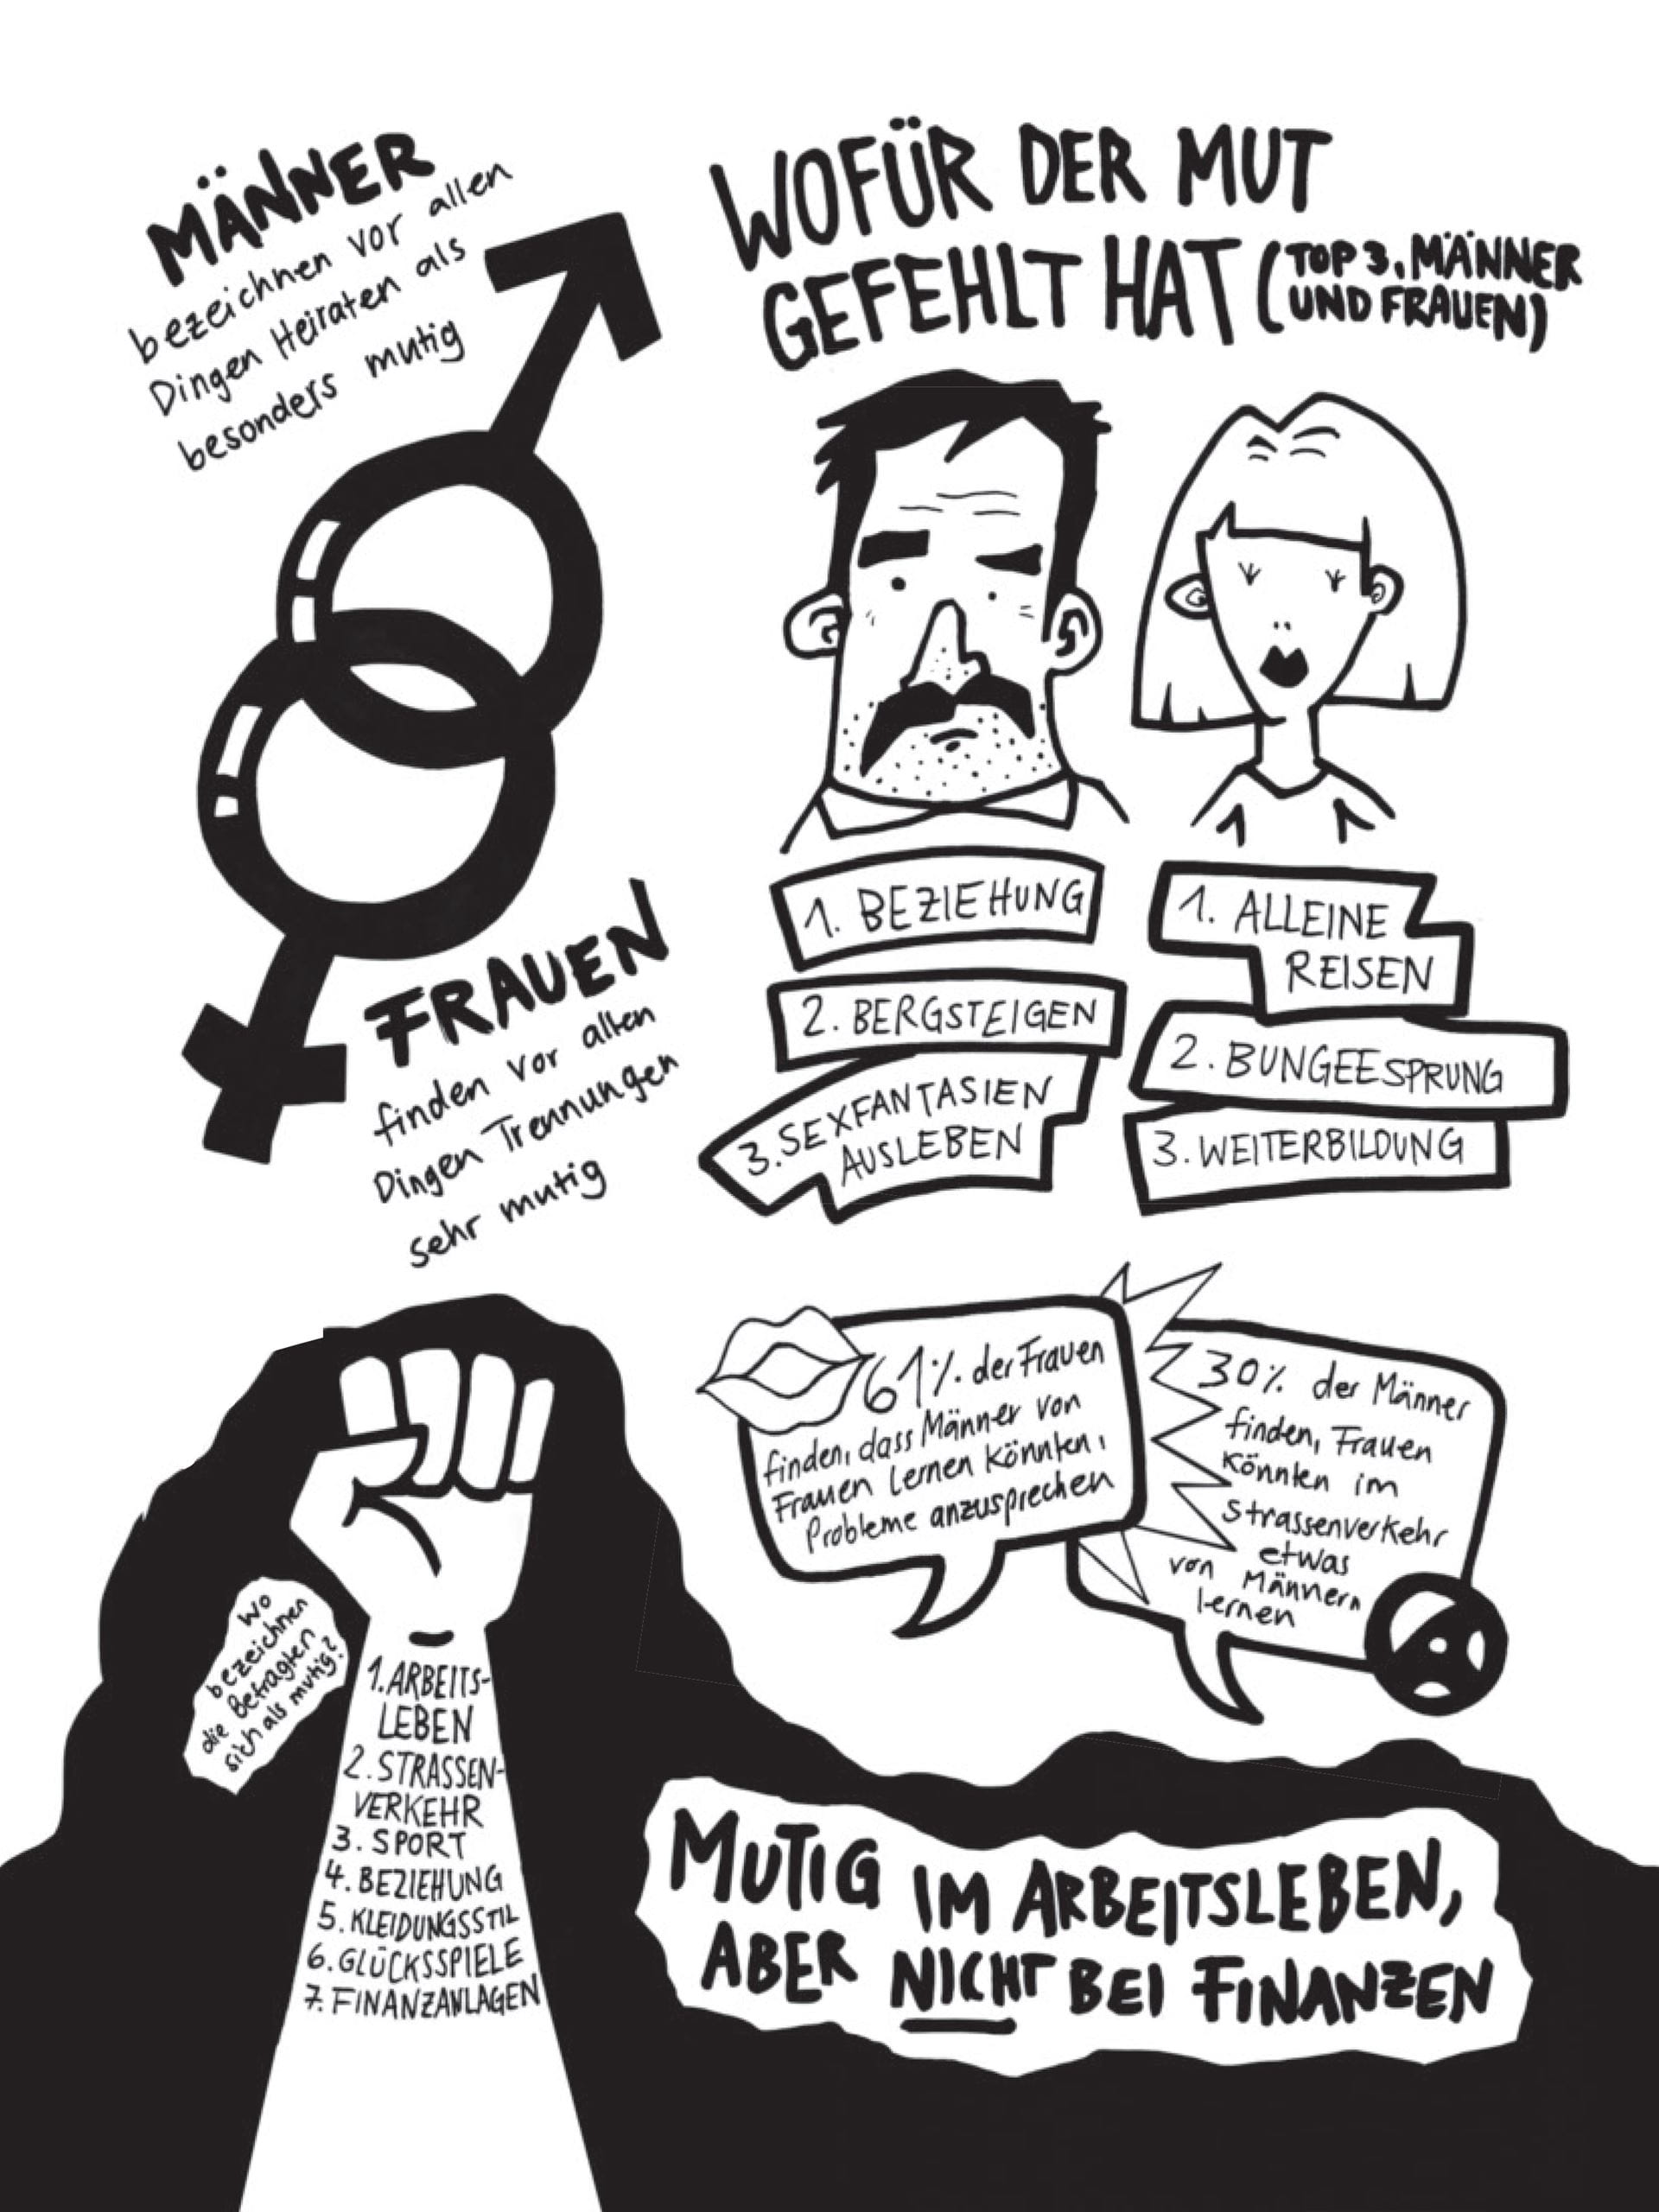 MÄNNER
bezeichnen vor allen
Dingen Heiraten als
besonders mutig
FRAUEN
finden vor allen
Dingen Trennungen
sehr mutig
WOFÜR DER MUT
GEFEHLT HAT (TOP 3, MÄNNER
UND FRAUEN)
1. BEZIEHUNG
2. BERGSTEIGEN
3. SEXFANTASIEN
AUSLEBEN
1. ALLEINE
REISEN
2. BUNGEESPRUNG
3. WEITERBILDUNG
61% der Frauen
finden, dass Männer von
Frauen lernen könnten,
Probleme anzusprechen
30% der Männer
finden, Frauen
könnten im
Strassenverkehr
etwas
von Männern
lernen
wo
bezeichnen
die Befragten
sich als mutig?
1. ARBEITS-
LEBEN
2. STRASSEN-
VERKEHR
3. SPORT
4. BEZIEHUNG
5. KLEIDUNGSSTIL
6. GLÜCKSSPIELE
7. FINANZANLAGEN
MUTIG IM ARBEITSLEBEN,
ABER NICHT BEI FINANZEN